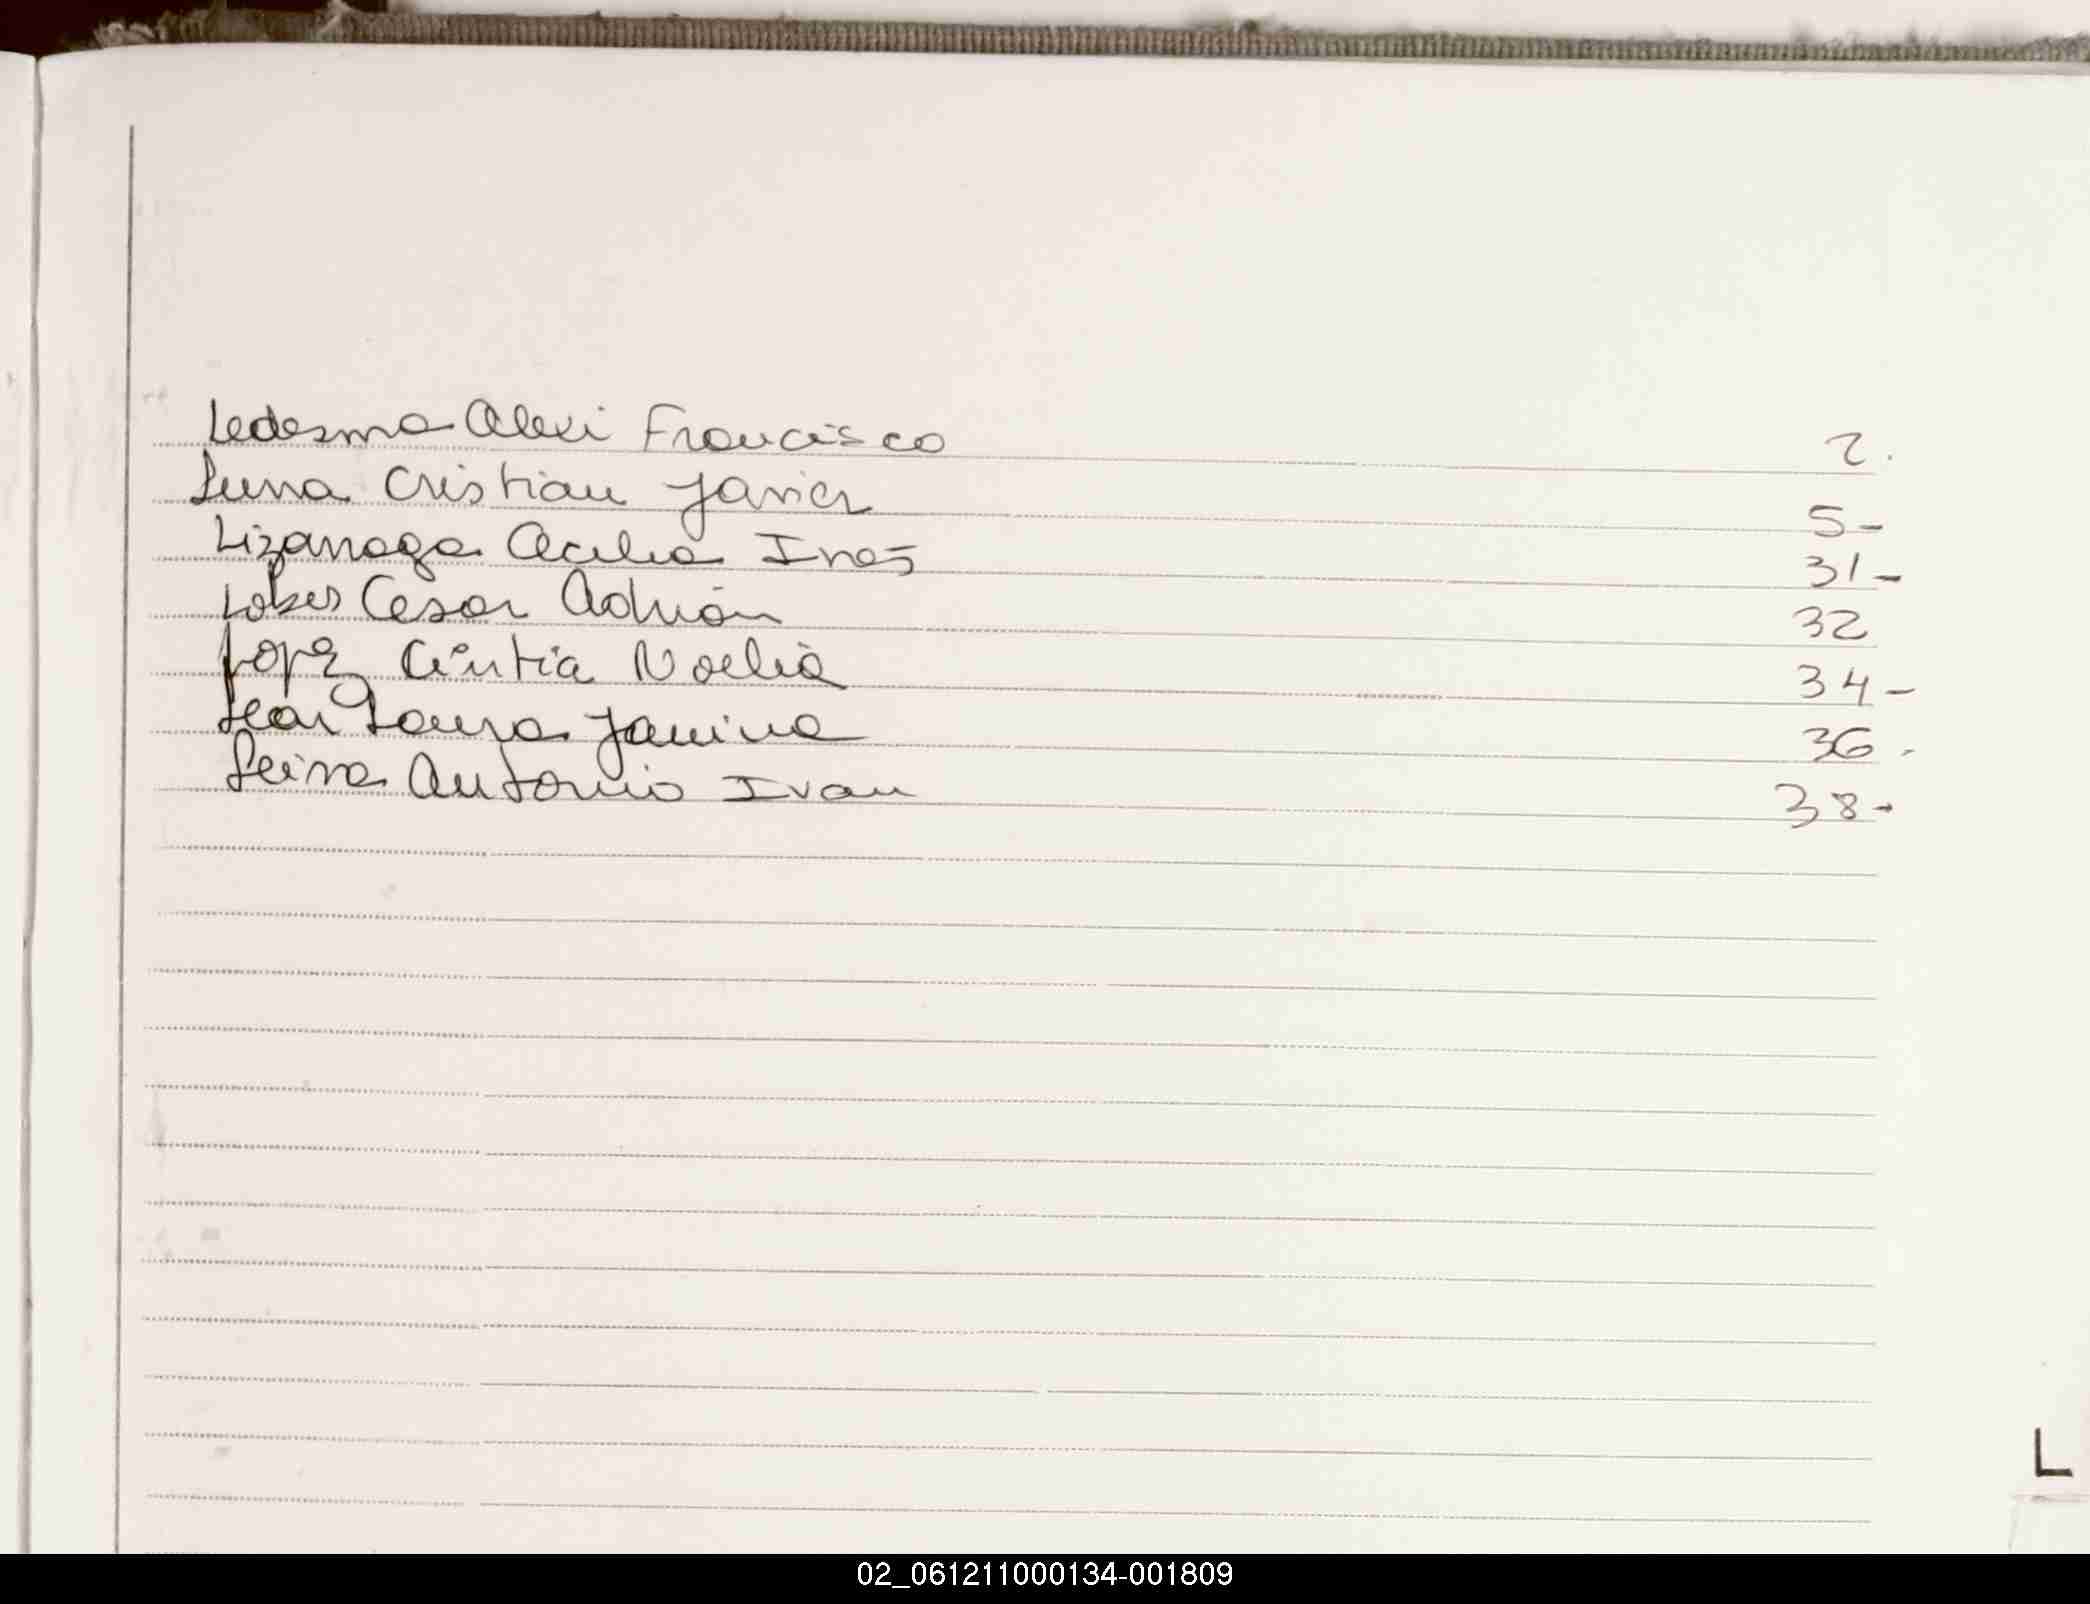 Ledesma Alexi Francisco 2.
Luna Cristian Javier 5-
Lizarraga Cecilia Ines 31-
Cesar Adrián 32
Lopez Cintia Noelia 34-
Leal Laura Janina 36-
Leiva Antonio Ivan 38-
L
02_061211000134-001809